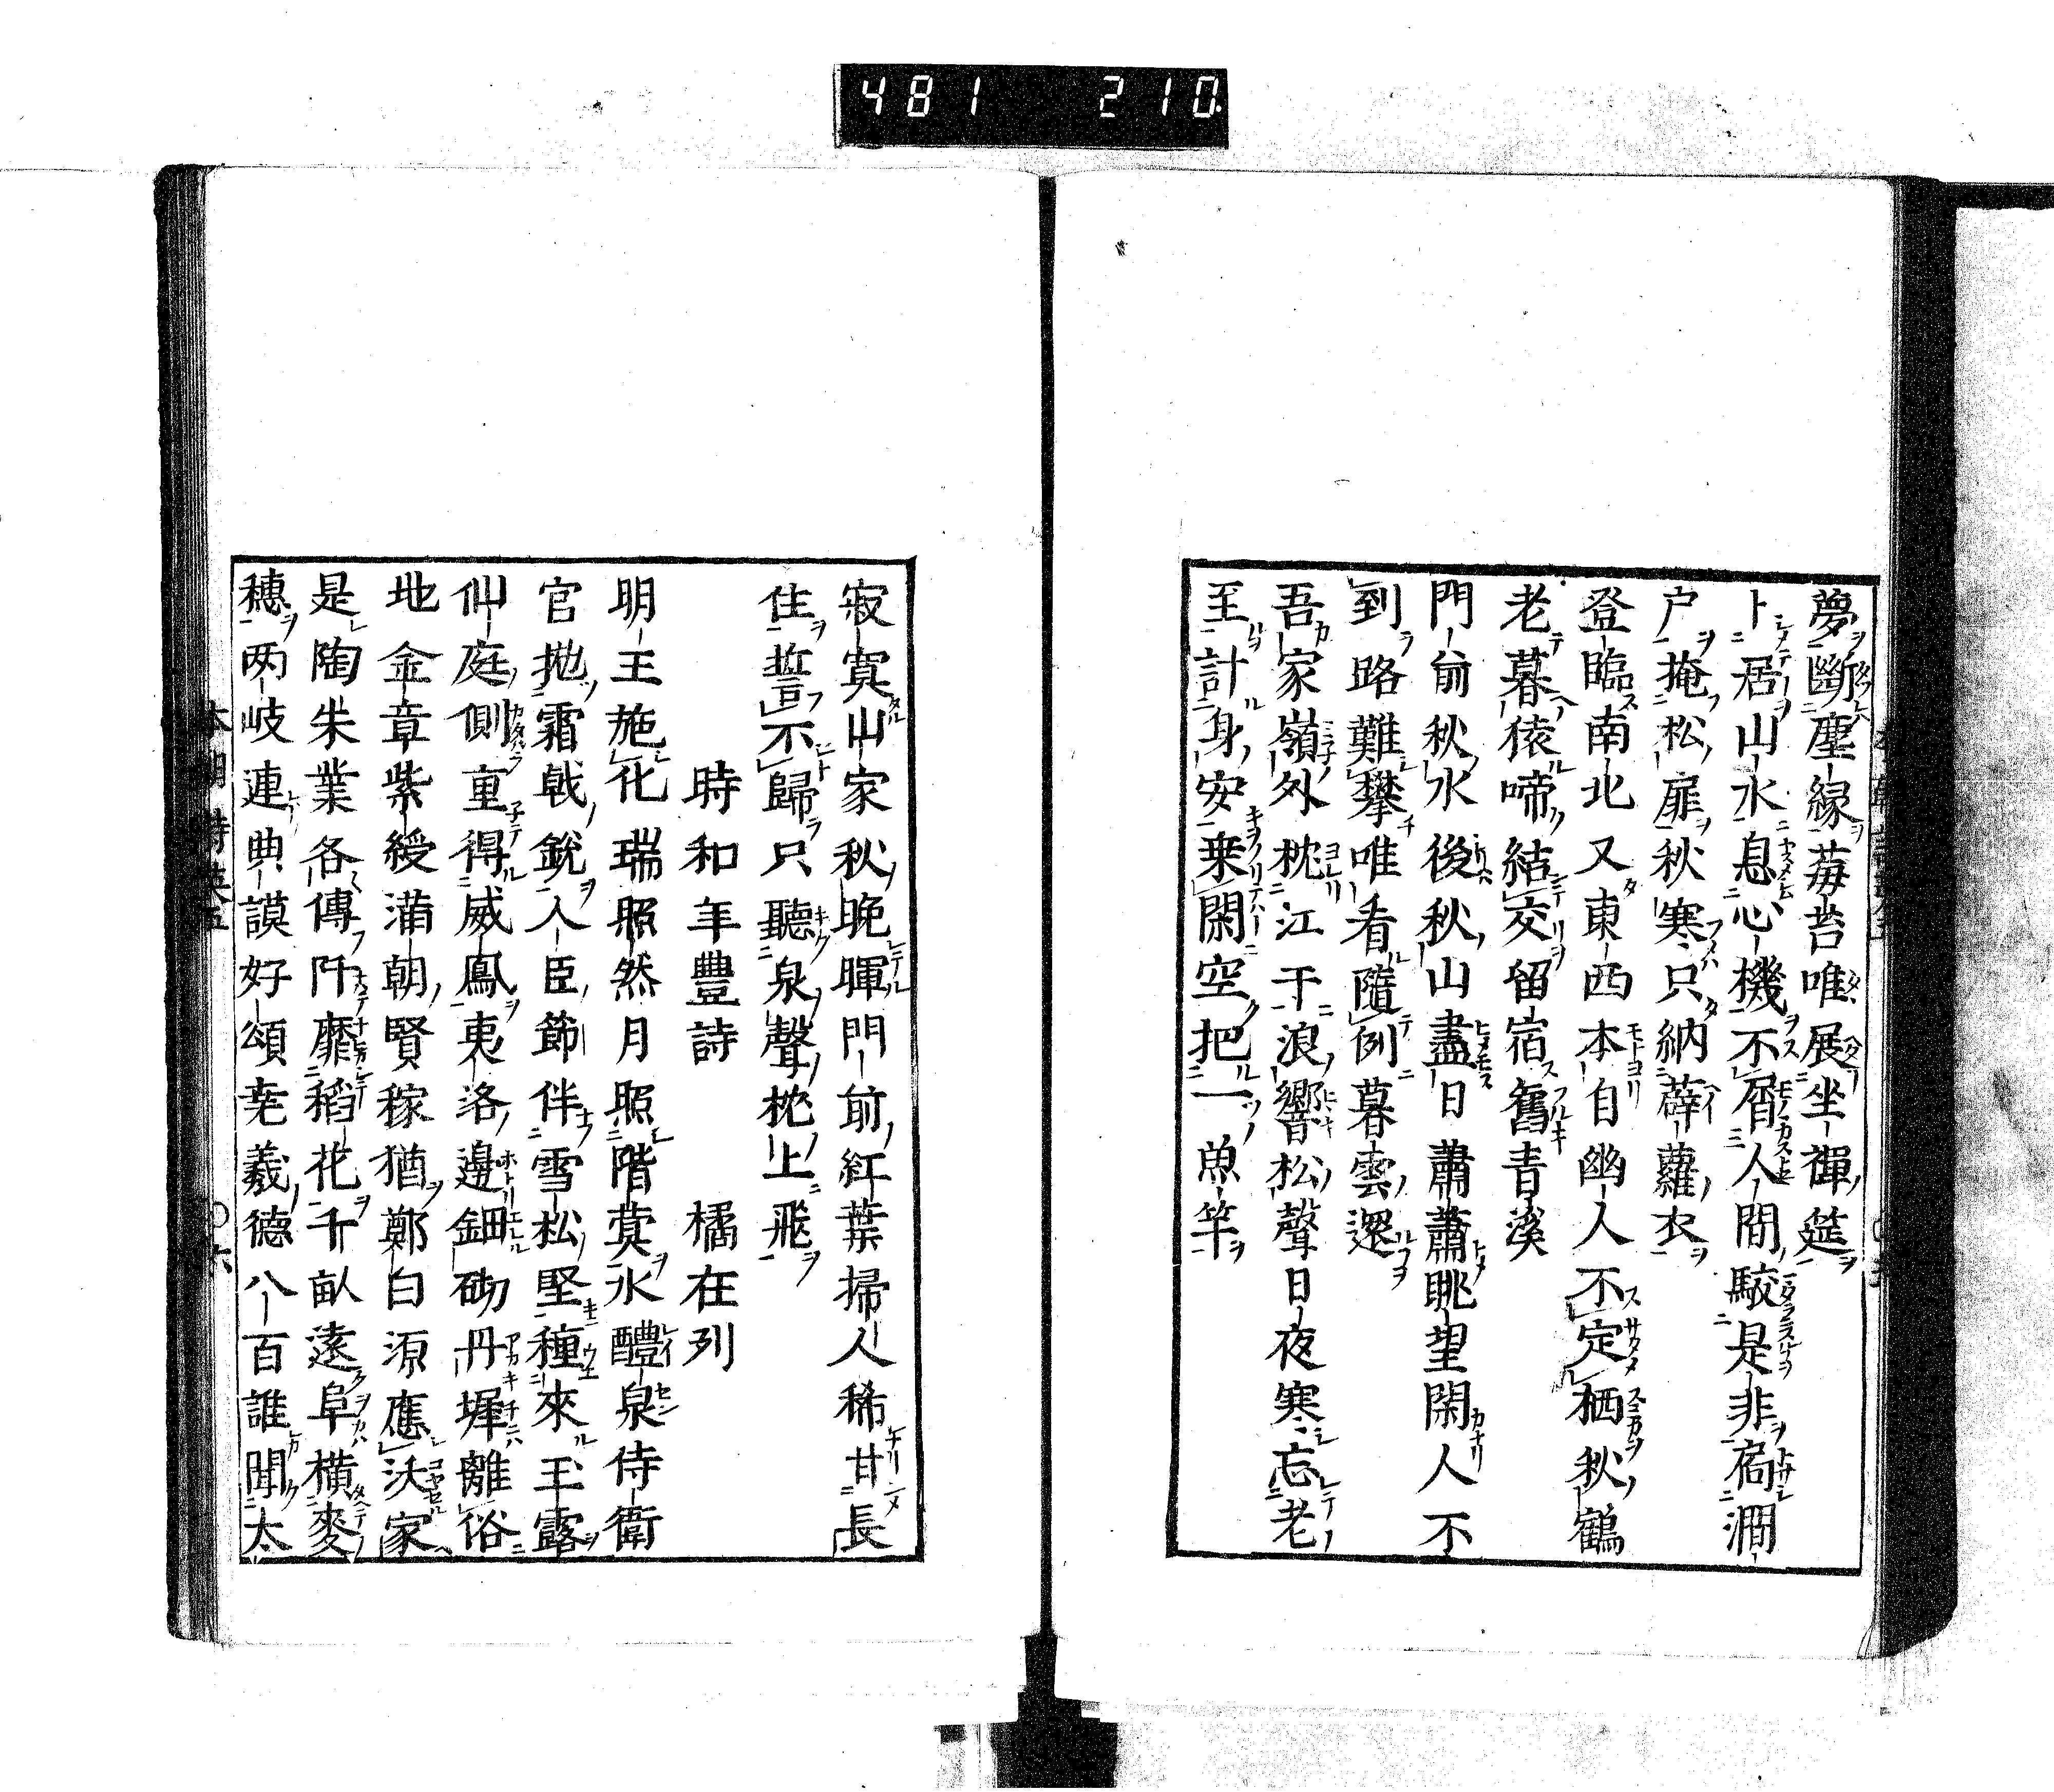 481 210
夢斷塵緣莓苔唯展坐禪筵
卜居山水息心機不屑人間駮是非扃澗
户掩松扉秋寒只納薜蘿衣
登臨南北又東西本自幽人不定栖秋鶴
老暮猿啼結交留宿舊青溪
門前秋水後秋山盡日蕭蕭眺望閑人不
到路難攀唯看隨例暮雲還
吾家嶺外枕江干浪響松聲日夜寒忘老
至計身安乗閑空把一魚竿
寂寞山家秋晚暉門前紅葉掃人稀甘長
住誓不歸只聽泉聲枕上飛
時和年豐詩 橘在列
明王施化瑞照然月照階蓂氷醴泉侍衛
官抛霜戟銳人臣節伴雪松堅種來玉露
仙庭側重得威鳳夷洛邊鈿砌丹墀離俗
地金章紫綬滿朝賢稼猶鄭白源應沃家
是陶朱業各傳阡靡稻花千畝遠阜橫麥
穗两岐連典謨好頌堯羲德八百誰聞太
本朝詩英五 〇六